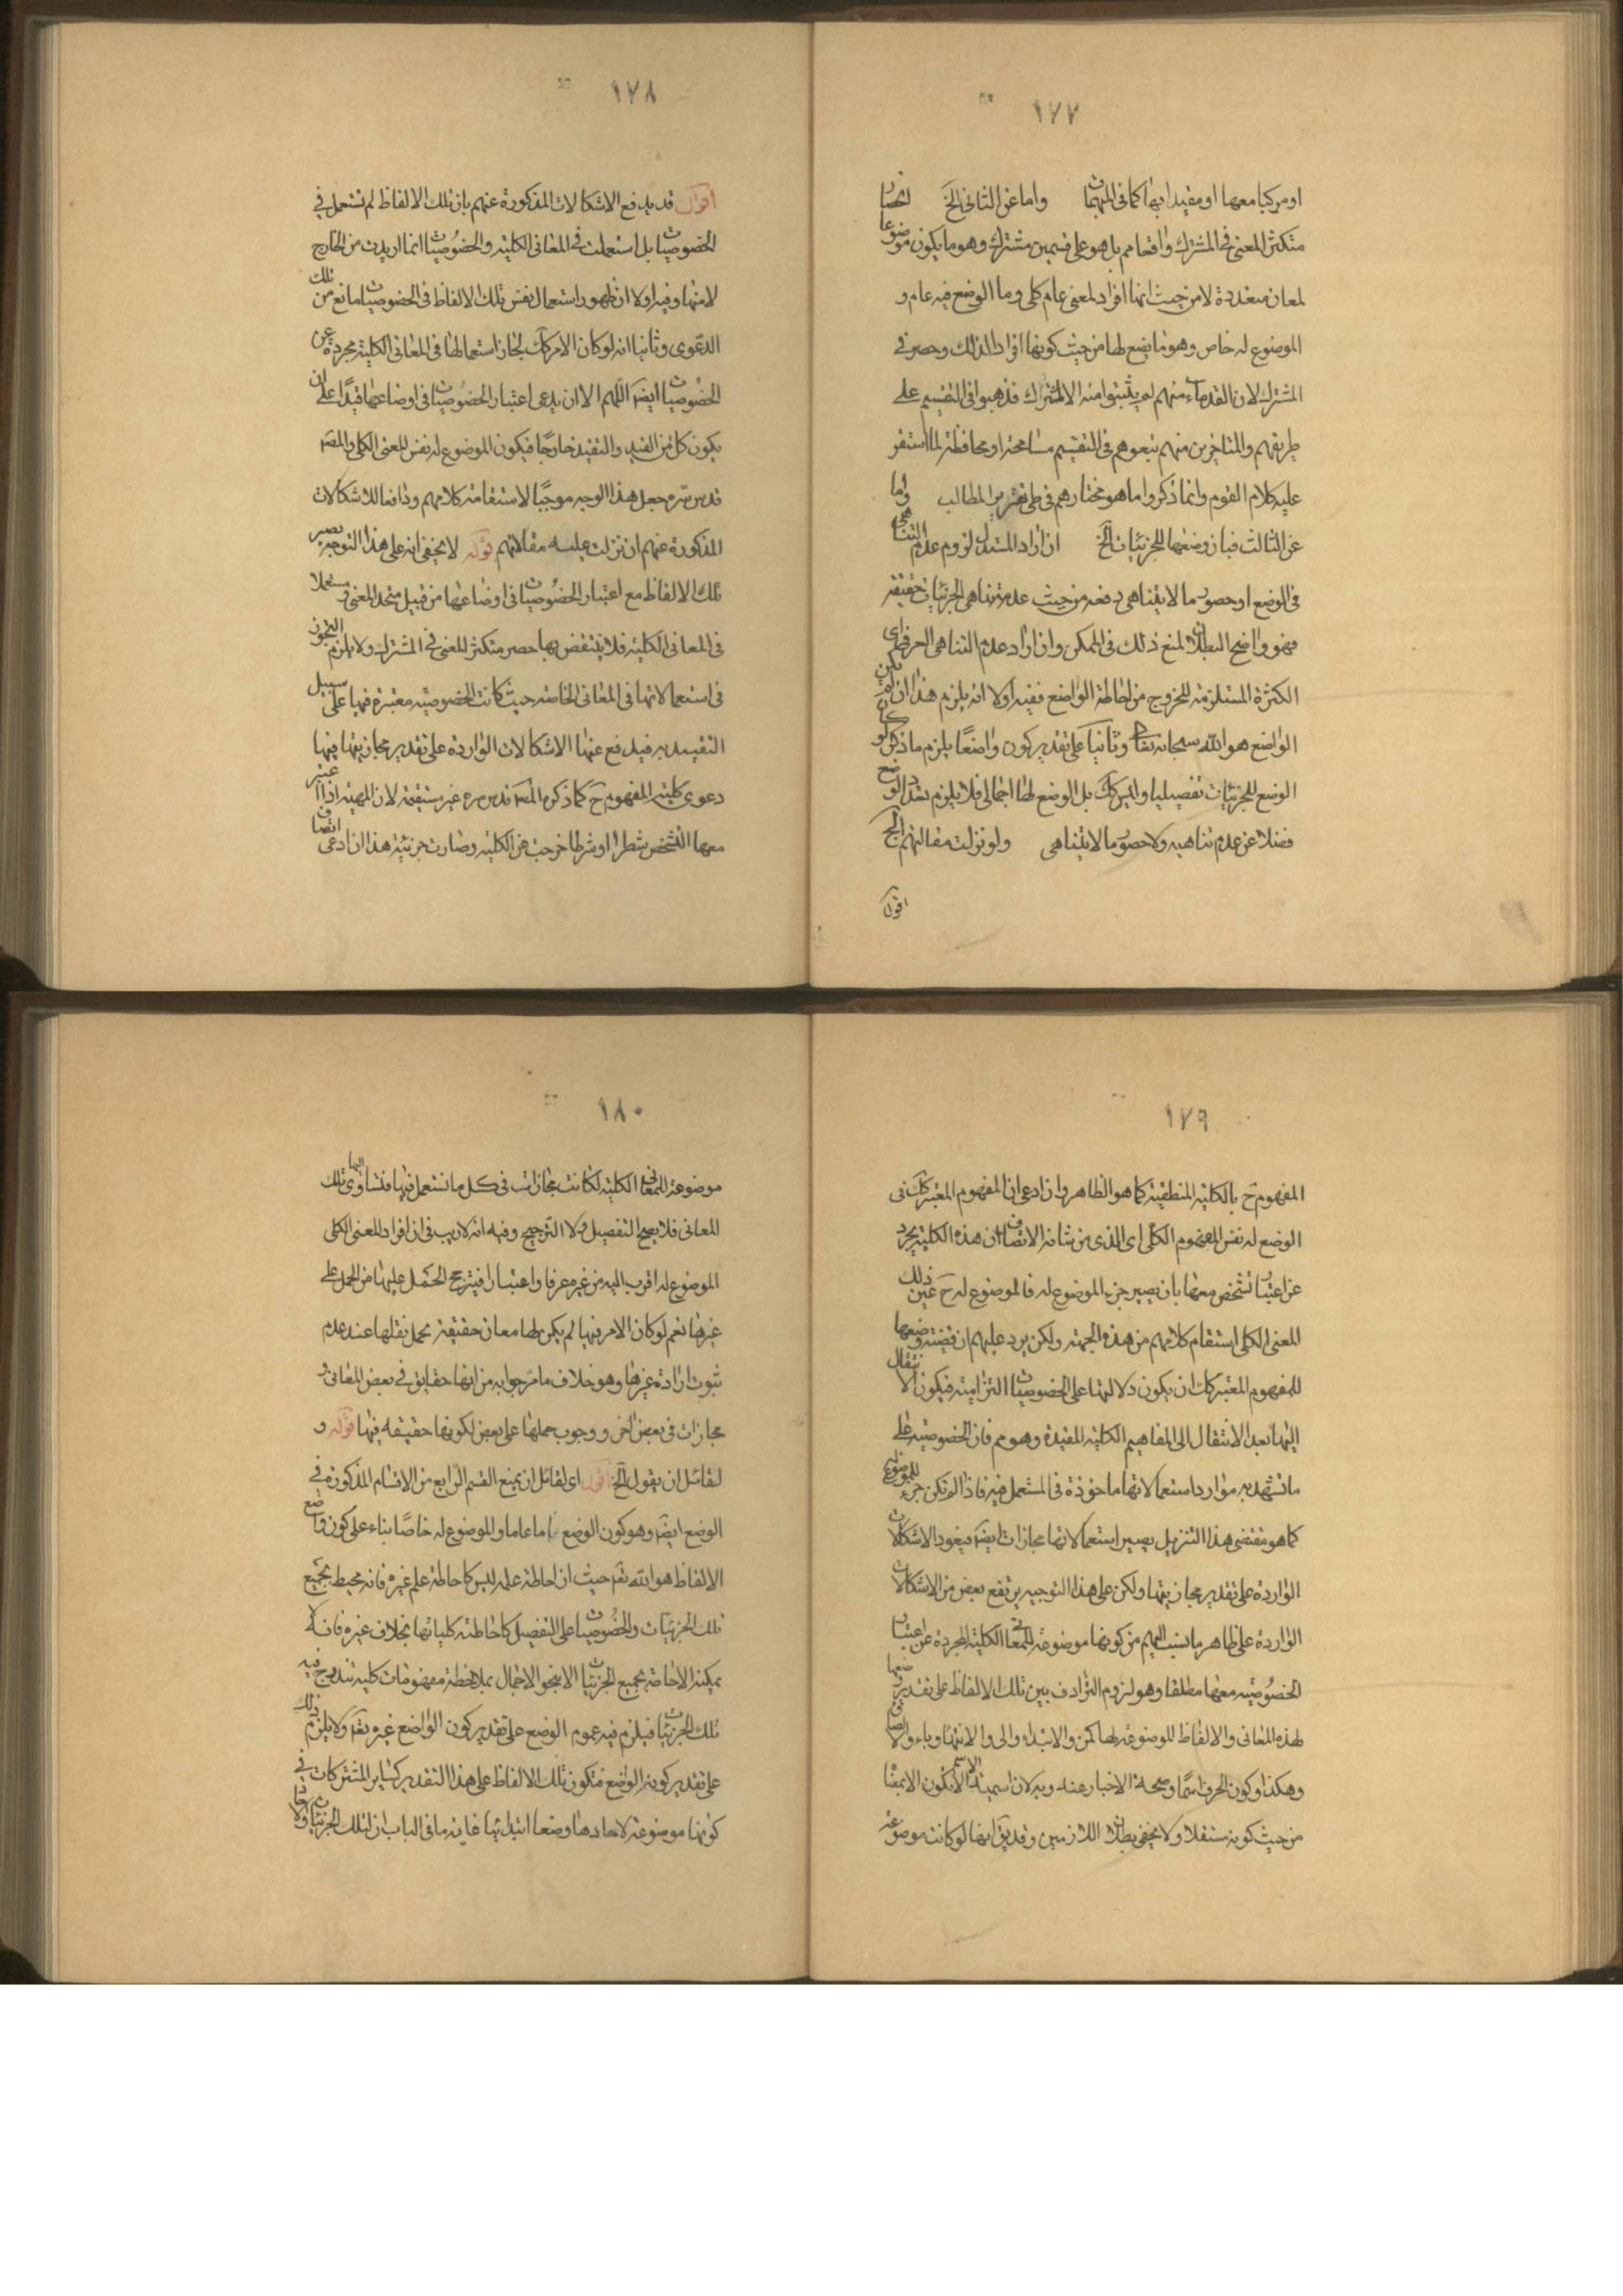 ١٧٧
او مركبا معها او مقيدا بها كما فى المبهمات واما عن الثانى الخ انحصار
متكثر المعنى فى المشترك واقعا مم بل هو على قسمين مشترك وهو ما يكون موضوعا
لمعان متعددة لا من حيث انها افراد لمعنى عام كلى وما الوضع فيه عام و
الموضوع له خاص وهو ما يضع لها من حيث كونها افرادا لذلك وحصر فى
المشترك لان القدماء منهم لم يثبتوا منه الا المشترك فذهبوا فى التقسيم على
طريقهم والمتاخرين منهم تبعوهم فى التقسيم مسامحة او محافظة لما استقر
عليه كلام القوم وانما ذكروا ما هو مختارهم فى طى تقرير المطالب واما
عن الثالث فبان وضعها للجزئيات الخ ان اراد المستدل لزوم عدم التناهى
فى الوضع او حصور ما لا يتناهى دفعة من حيث عدم تناهى الجزئيات حقيقة
فهو واضح البطلان لمنع ذلك فى الممكن وان اراد عدم التناهى العرفى اى
الكثرة المستلزمة للخروج من احاطة الواضع ففيه اولا انه يلزم هذا ان لم يكن
الواضع هو الله سبحانه تعالى وثانيا على تقدير كون واضعًا يلزم ما ذكر لو كان
الوضع للجزئيات تفصيليا وليس كك بل الوضع لها اجمالى فلا يلزم تعدد الوضع
فضلا عن عدم تناهيه ولا حصور ما لا يتناهى ولو نزلت مقالتهم الخ
اقول
١٧٨
اقول قد يدفع الاشكالات المذكورة عنهم بان تلك الالفاظ لم تستعمل فى
الخصوصيات بل استعملت فى المعانى الكلية والخصوصيات انما اريدت من الخارج
لا منها وفيه اولا ان ظهور استعمال نفس تلك الالفاظ فى الخصوصيات مانع من تلك
الدعوى وثانيا انه لو كان الامر كك لجاز استعمالها فى المعانى الكلية مجردة عن
الخصوصيات ايضا اللهم الا ان يدعى اعتبار الخصوصيات فى اوضاعها قيدًا على ان
يكون كل من القيد والتقييد خارجًا فيكون الموضوع له نفس المعنى الكلى والمصنف
قدس سره جعل هذا الوجه موجبًا لاستقامة كلامهم ودافعا للاشكالات
المذكورة عنهم ان نزلت عليه مقالاتهم قوله لا يخفى انه على هذا التوجيه يصير
تلك الالفاظ مع اعتبار الخصوصيات فى اوضاعها من قبيل متحد المعنى ومستعملا
فى المعانى الكلية فلا ينتقض بها حصر متكثر المعنى فى المشترك ولا يلزم التجوز
فى استعمالاتها فى المعانى الخاصة حيث كانت الخصوصية معتبرة فيها على سبيل
التقييد به فيدفع عنها الاشكالات الواردة على تقدير مجازيتها فيها
دعوى كلية المفهوم ح كما ذكره المص قدس سره غير مستقيمة لان المهية اذا اعتبر
معها التشخص شطرا او شرطا خرجت عن الكلية وصارت جزئية هذا ان ادعى اتصاف
١٧٩
المفهوم ح بالكلية المنطقية كما هو الظاهر وان ادعى ان المفهوم المعتبر كك فى
الوضع له نفس المفهوم الكلى اى الذى من شانه الاتصاف ان هذه الكلية يجرد
عن اعتبار تشخص معها بان يصير جزء الموضوع له فالموضوع له ح عين ذلك
المعنى الكلى استقام كلامهم من هذه الجهة ولكن يرد عليهم ان قضية وضعها
للمفهوم المعتبر كك ان يكون دلالتها على الخصوصيات التزامية فيكون الانتقال
اليها بعد الانتقال الى المفاهيم الكلية المقيدة وهو مم فان الخصوصية على
ما تشهد به موارد استعمالاتها ماخوذة فى المستعمل فيه فاذا لم تكن جزء للموضوع له
كما هو مقتضى هذا التنزيل يصير استعمالاتها مجازات ايضا فيعود الاشكالات
الواردة على تقدير مجازيتها ولكن على هذا التوجيه يرتفع بعض من الاشكالات
الواردة على ظاهر ما نسب اليهم من كونها موضوعة للمعانى الكلية المجردة عن اعتبار
الخصوصية معها مطلقا وهو لزوم الترادف بين تلك الالفاظ على تقدير وضعها
لهذه المعانى والالفاظ الموضوعة لها كمن والابتداء والى والانتهاء وباء والالصاق
وهكذا وكون الحرف اسمًا وصحة الاخبار عنه وبه لان اسمية الاسم لا يكون الا بمعناه
من حيث كونه مستقلا ولا يخفى بطلان اللازمين وقد يق انها لو كانت موضوعة
١٨٠
موضوعة للمعانى الكلية لكانت مجازات فى كل ما تستعمل فيها فتساوى اليها تلك
المعانى فلا يصح التفصيل ولا الترجيح وفيه انه لا ريب فى ان افراد المعنى الكلى
الموضوع له اقرب اليه من غيره عرفا واعتبارا فيترجح الحمل عليها من الحمل على
غيرها نعم لو كان الامر فيها لم يكن لها معان حقيقة يحمل نقلها عند عدم
ثبوت ارادة غيرها وهو خلاف ما مر جوابه من انها حقايق فى بعض المعانى و
مجازات فى بعض اخر ووجوب حملها على بعض لكونها حقيقة فيها قوله و
لقائل ان يقول الخ اقول اى لقائل ان يمنع القسم الرابع من الاقسام المذكورة فى
الوضع ايضا وهو كون الوضع عاما والموضوع له خاصًا بناء على كون واضع
الالفاظ هو الله تعالى حيث ان احاطة علمه ليس كاحاطة علم غيره فانه محيط بجميع
تلك الجزئيات والخصوصيات على التفصيل كاحاطته كلياتها بخلاف غيره فانه لا
يمكنه الاحاطة بجميع الجزئيات الا بنحو الاجمال بملاحظة مفهومات كلية تندرج فيه
تلك الجزئيات فيلزم فيه عموم الوضع على تقدير كون الواضع غيره تعالى ولا يلزم ذلك
على تقدير كونه الواضع فتكون تلك الالفاظ على هذا التقدير كساير المشتركات فى
كونها موضوعة لاحادها وضعا ابتدائيا غاية ما فى الباب ان لتلك الجزئيات